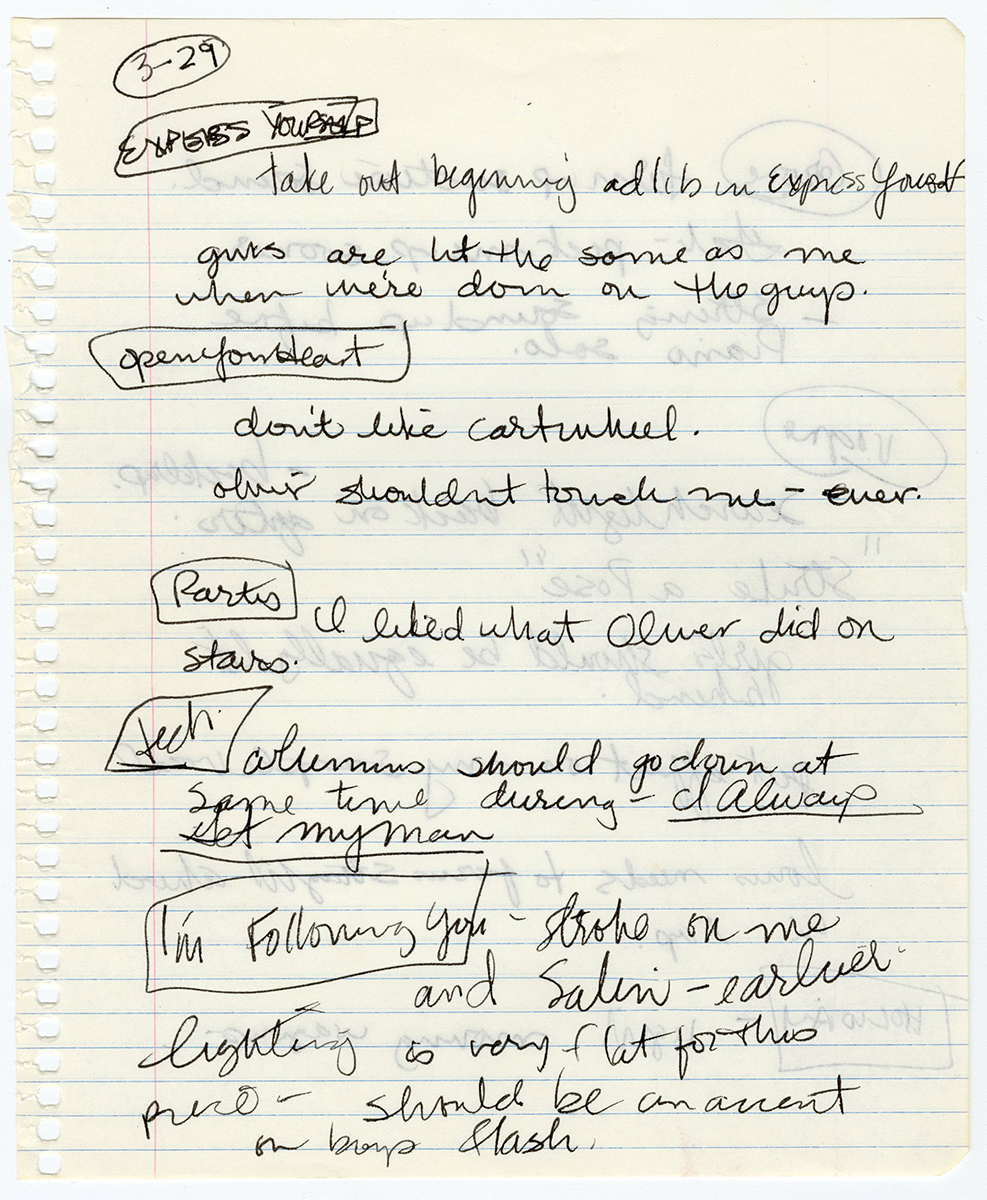 3-29
EXPRESS YOURSELF
take out beginning ad lib in Express Yourself
girls are lit the same as me
when we're down on the guys.
Open Your Heart
don't like cartwheel.
oliver shouldn't touch me - ever.
Parties
I liked what Oliver did on
stairs.
tech.
columns should go down at
same time during - I Always
get my man
I'm Following You - Strobe on me
and Salim - earlier.
lighting is very flat for this
piece - should be an accent
on boys flash.